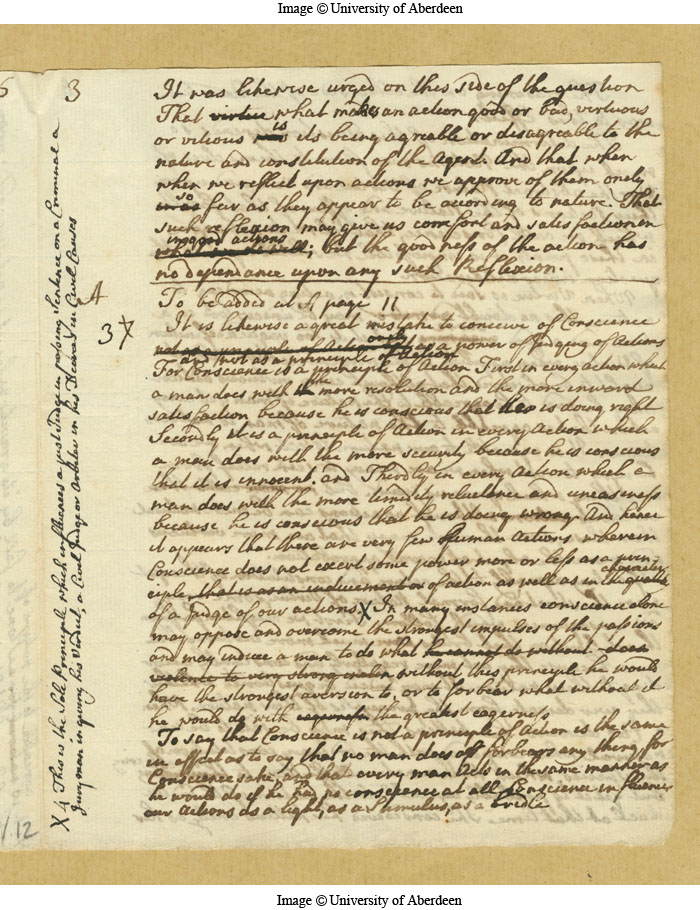 Image © University of Aberdeen
3
It was likewise urged on this side of the question
That virtue what makes an action good or bad, virtuous
or vitious is its being agreable or disagreable to the
nature and constitution of the Agent. And that when
when we reflect upon actions we approve of them onely
in as so far as they appear to be according to nature. That
such reflexion may give us comfort and satisfaction in
in good actions
; but the goodness of the action has
no dependance upon any such Reflexion.
A
To be added at A page 11
3X
It is likewise a great mistake to conceive of Conscience
not as a principle of Action but onely as a power of Judging of Actions
and not as a principle of Action
For Conscience is a principle of Action First in every action which
a man does with the more resolution and the more inward
satisfaction because he is conscious that he is doing right
Secondly It is a principle of Action in every Action which
a man does with the more security because he is conscious
that it is innocent. and Thirdly in every Action which a
man does with the more timidity reluctance and uneasiness
because he is conscious that he is doing wrong. And hence
it appears that there are very few Human Actions wherein
Conscience does not exert some power more or less as a prin-
ciple, that is as an inducement of action as well as in the quality character
of a Judge of our actions X In many instances conscience alone
may oppose and overcome the strongest impulses of the passions
and may induce a man to do what he cannot do without does
violence to very strong without this principle he would
have the strongest aversion to, or to forbear what without it
he would do with eagerness the greatest eagerness
To say that Conscience is not a principle of Action is the same
in effect as to say that no man does or forbears any thing for
Conscience sake, and that every man Acts in the same manner as
he would do if he had no conscience at all. Conscience influences
our Actions as a light, as a Stimulus, as a bridle
X This is the Sole Principle which influences a just Judge in passing Sentence on a Criminal a
Juryman in giving his Verdict, a Civil Judge or Arbiter in his Decreet in Civil Causes
1.12
Image © University of Aberdeen